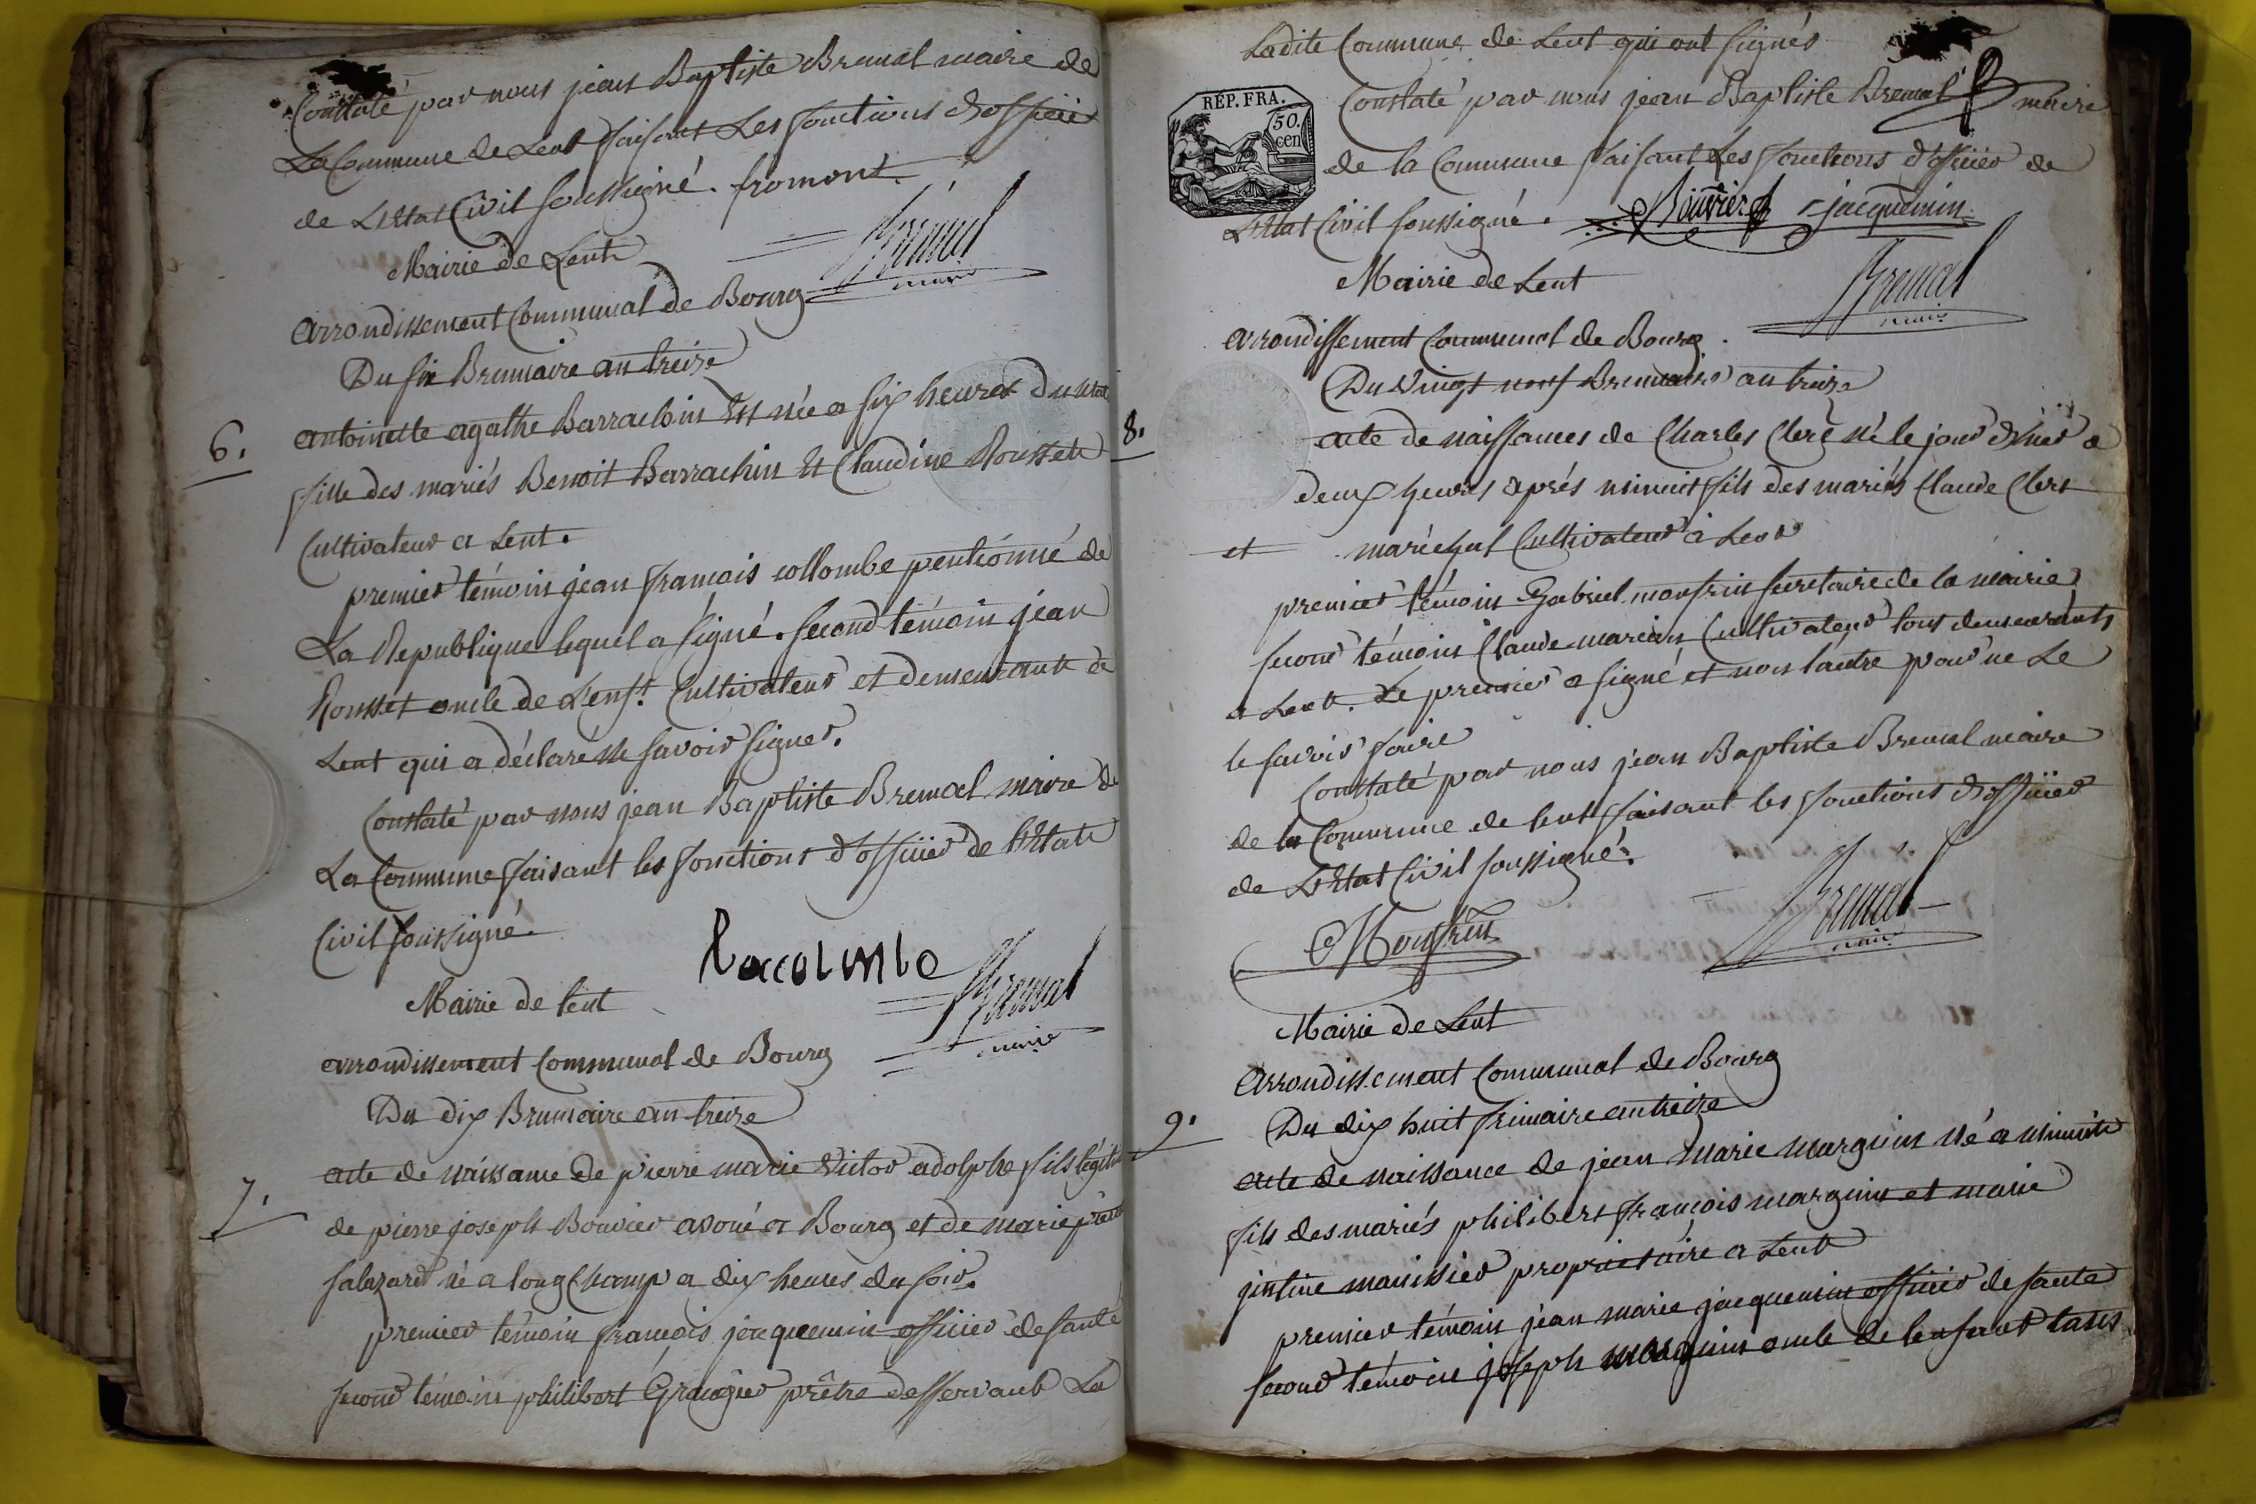 Constaté par nous jean Baptiste Bremal maire de
La Commune de Lent faisant Les fonctions d'officier
de L'Etat Civil soussigné. fromont
Bremal
maire
Mairie de Lent
arrondissement Communal de Bourg
Du six Brumaire an treize
6.
antoinette agathe Barrachin Est née a six heures du
fille des mariés Benoit Barrachin Et Claudine Rousset
Cultivateur a Lent.
premier témoin jean francois collombe pentionné de
La Republique lequel a signé. second témoin jean
Rousset oncle de L'enft. Cultivateur et demeurant a
Lent qui a déclaré ne savoir signer.
Constaté par nous jean Baptiste Bremal maire de
La Commune faisant les fonctions d'officier de l'Etat
Civil soussigné.
Bremal
maire
Mairie de lent
arrondissement Communal de Bourg
Du dix Brumaire an treize
7.
acte de naissance de pierre marie Victor adolphe fils
de pierre joseph Bouvier avoué a Bourg et de marie
salazard né a long Champ a dix heures du soir.
premier témoin francois jacquemin officier de santé
second témoin philibert Grangier prêtre desservant La
Ladite Commune de Lent qui ont signés
RÉP. FRA.
50.
cen
Constaté par nous jean Baptiste Bremal maire
de la Commune faisant Les fonctions d'officier de
L'Etat Civil soussigné. Bouvier jacquemin
Bremal
maire
Mairie de Lent
arrondissement Communal de Bourg.
Du Vingt neuf Brumaire an treize
8.
acte de naissances de Charles Clerc né le jour d'hier a
deux heures aprés minuit fils des mariés Claude Clerc
et maréchal Cultivateur à Lent
premier témoin Gabriel monfrin secretaire de la mairie
second témoin Claude marion Cultivateur tous demeurants
a Lent. Le premier a signé et non l'autre pour ne Le
le savoir faire
Constaté par nous jean Baptiste Bremal maire
de la Commune de lent faisant les fonctions d'officier
de L'Etat Civil soussigné.
Monfrin
Bremal
maire
Mairie de Lent
Arrondissement Communal de Bourg
9.
Du dix huit frimaire an treize
acte de naissance de jean Marie marguin né a minuit
fils des mariés philibert françois marguin et marie
justine manissier proprietaire a Lent
premier témoin jean marie jacquemin officier de santé
second témoin joseph marguin oncle de l'enfant tous